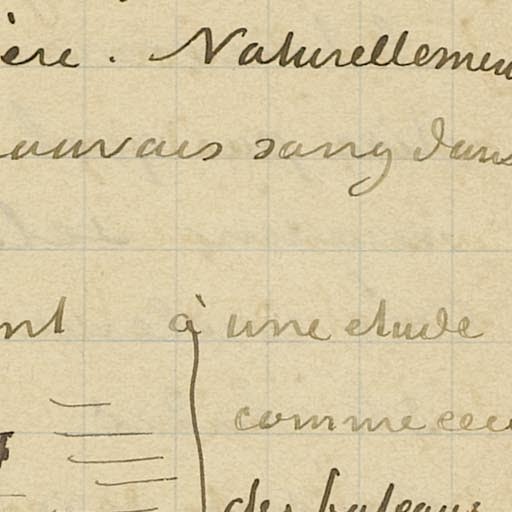 ère. Naturellemen
auvais sang dans
nt à une etude
comme cec
des bateaux